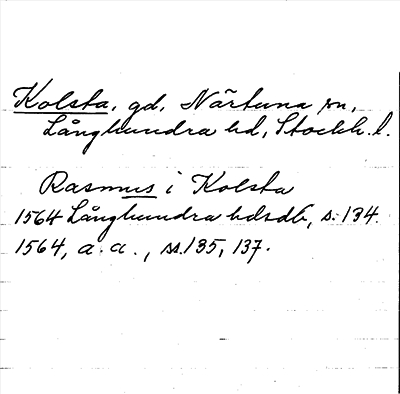 Kolsta, gd, Närtuna sn,
Långhundra hd, Stockh. l.
Rasmus i Kolsta
1564 Långhundra hdsdb, s. 134.
1564, a. a., ss. 135, 137.